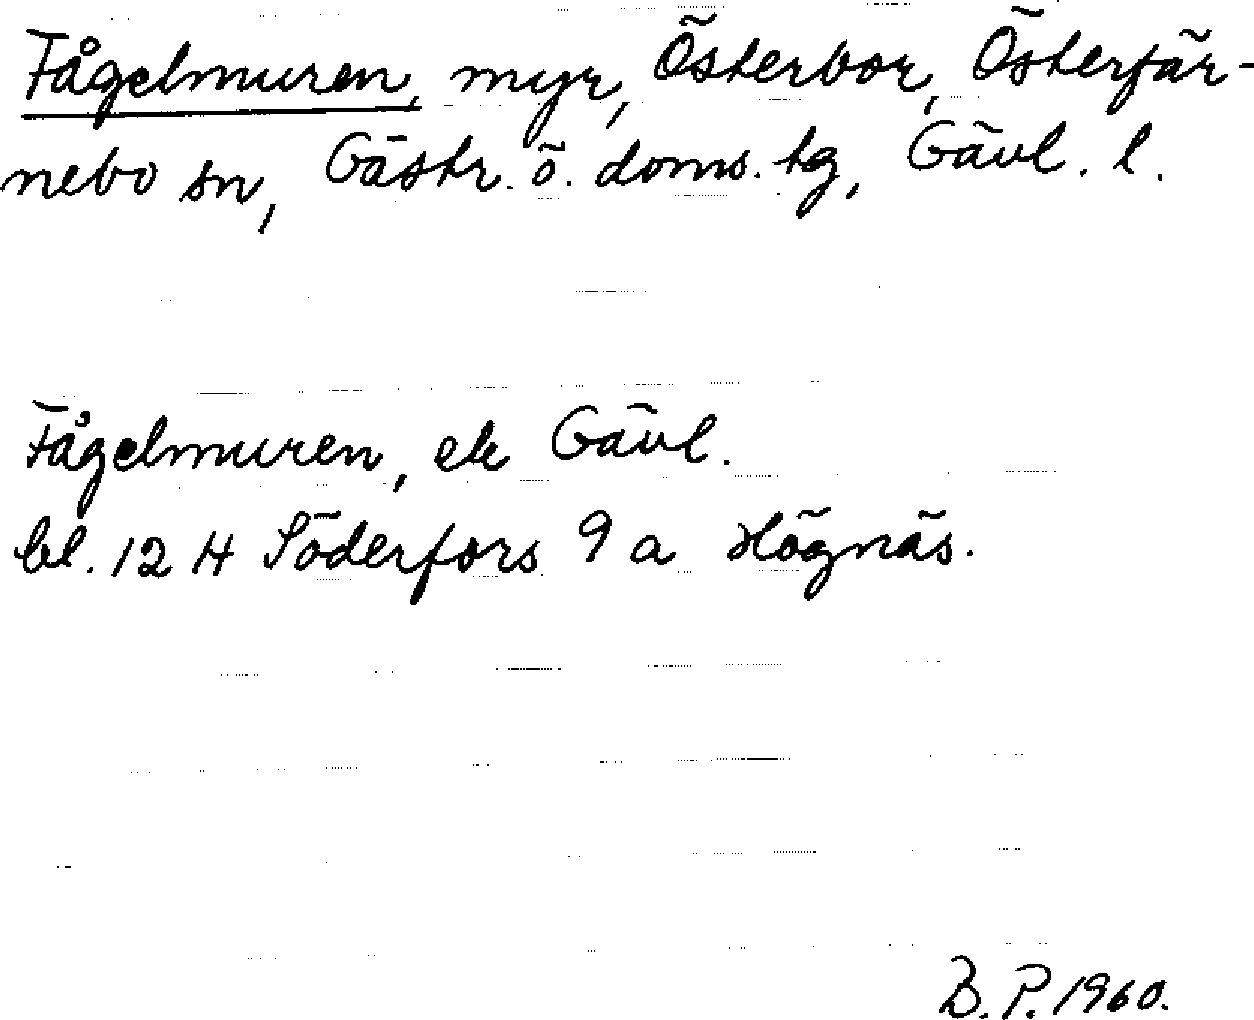 Fågelmuren, myr, Österbor, Österfär-
nebo sn, Gästr. ö. doms. tg, Gävl. l.
Fågelmuren, ek Gävl.
bl. 12 H Söderfors 9 a Högnäs.
B. P. 1960.